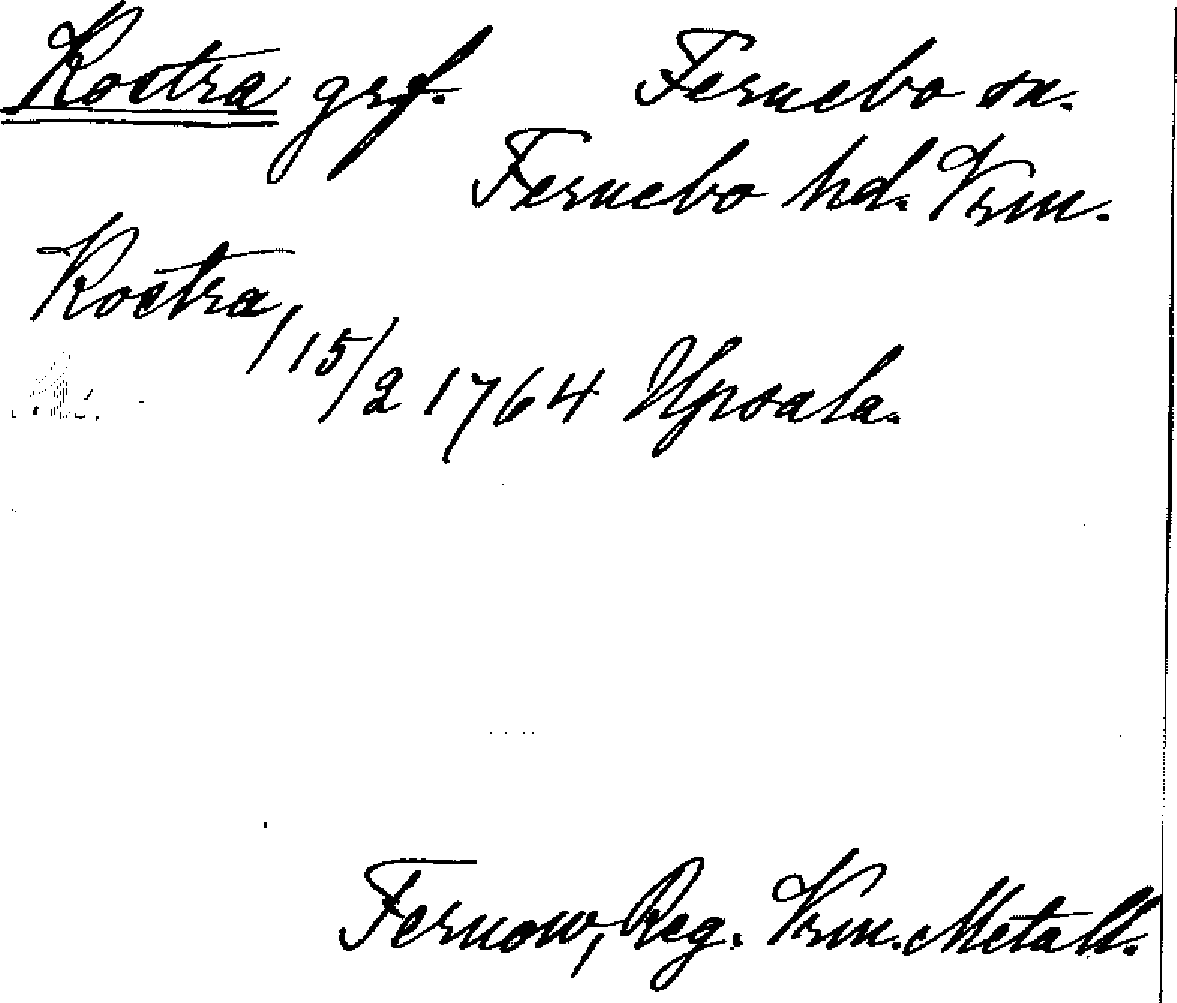 Kostra grf. Fernebo sn.
Fernebo hd. Vrm.
Kostra,
/ 15/2 1764 Upsala.
Fernow, Reg. Vrm. Metall.